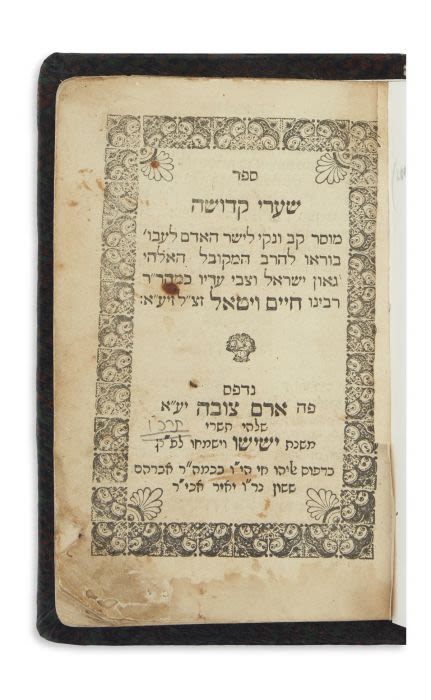 ספר
שערי קדושה
מוסר קב ונקי לישר האדם לעבו'
בוראו להרב המקובל האלהי
גאון ישראל וצבי עדיו כמהר"ר
רבינו חיים ויטאל זצ"ל זיע"א:
נדפס
פה ארם צובה יע"א
שלהי תשרי
תרכ"ו
משנת ישישו וישמחו לפ"ק
בדפוס אליהו חי הי"ו בכמה"ר אברהם
ששון נר"ו יאיר אכי"ר